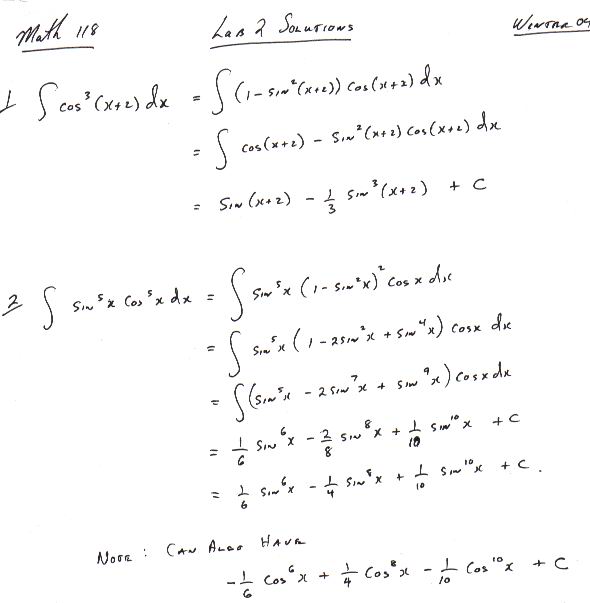 Math 118 Lab 2 Solutions Winter 09
1 ∫ cos³(x+2) dx = ∫ (1 - sin²(x+2)) cos(x+2) dx
= ∫ cos(x+2) - sin²(x+2) cos(x+2) dx
= sin(x+2) - 1/3 sin³(x+2) + C
2 ∫ sin⁵x cos⁵x dx = ∫ sin⁵x (1 - sin²x)² cos x dx
= ∫ sin⁵x (1 - 2sin²x + sin⁴x) cosx dx
= ∫ (sin⁵x - 2 sin⁷x + sin⁹x) cosx dx
= 1/6 sin⁶x - 2/8 sin⁸x + 1/10 sin¹⁰x + C
= 1/6 sin⁶x - 1/4 sin⁸x + 1/10 sin¹⁰x + C.
Note: Can Also Have
-1/6 cos⁶x + 1/4 cos⁸x - 1/10 cos¹⁰x + C